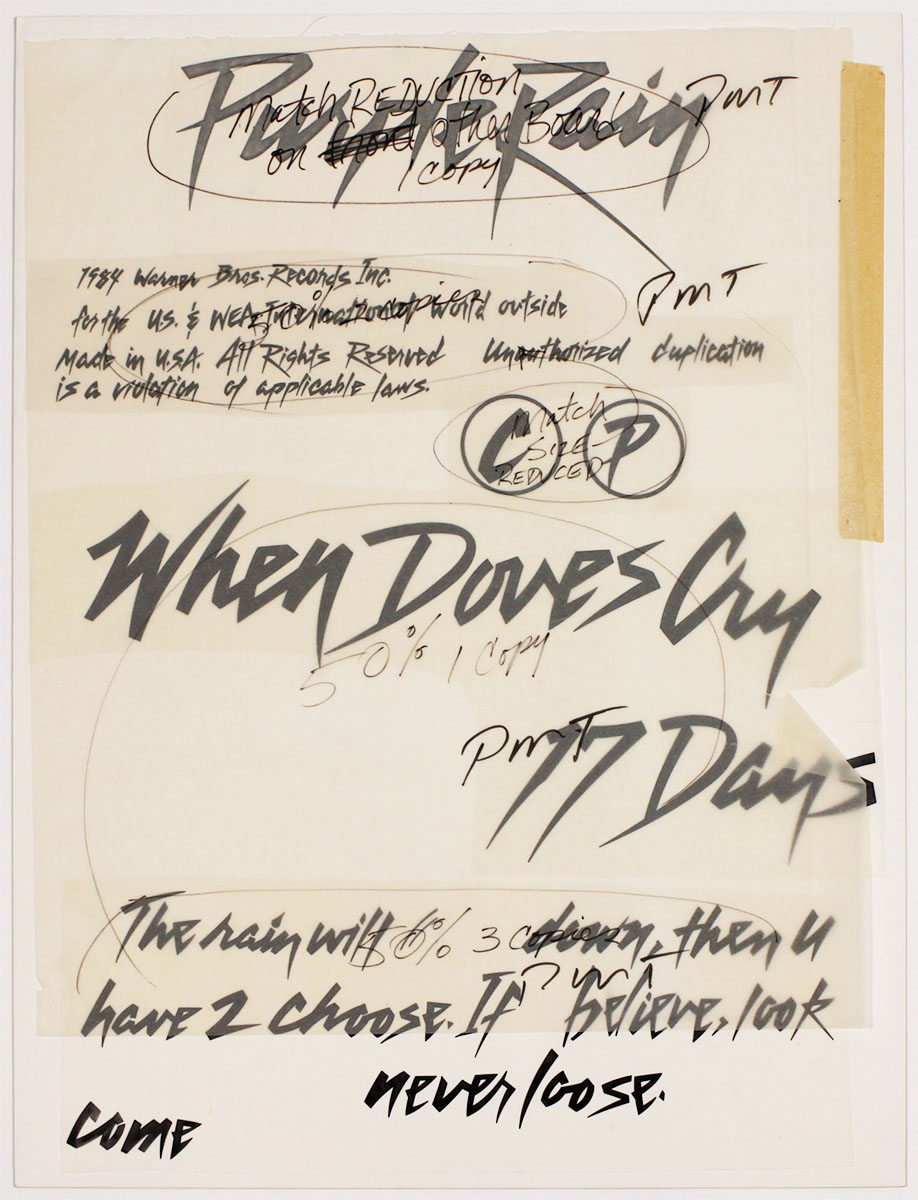 Purple Rain
Match REDUCTION
on other Board
1 copy
PMT
1984 Warner Bros. Records Inc.
for the U.S. & WEA International world outside
50% 2 copies
PMT
Made in U.S.A. All Rights Reserved Unauthorized duplication
is a violation of applicable laws.
C P
Match
SIZE-
REDUCED
When Doves Cry
50% 1 Copy
PMT
17 Days
The rain will down, then U
50% 3 copies
PMT
have 2 choose. If believe, look
never loose.
come